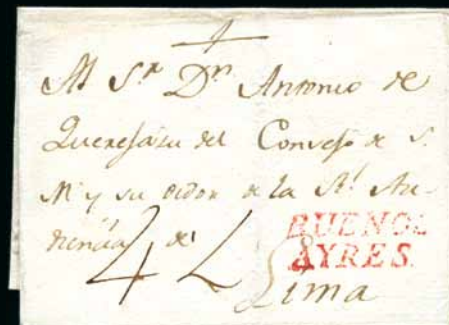 Al Sr. Dn. Antonio de
del Consejo de S.
M. y su oidor de la Rl. Au-
diencia de
4
BUENOS
AYRES.
Lima